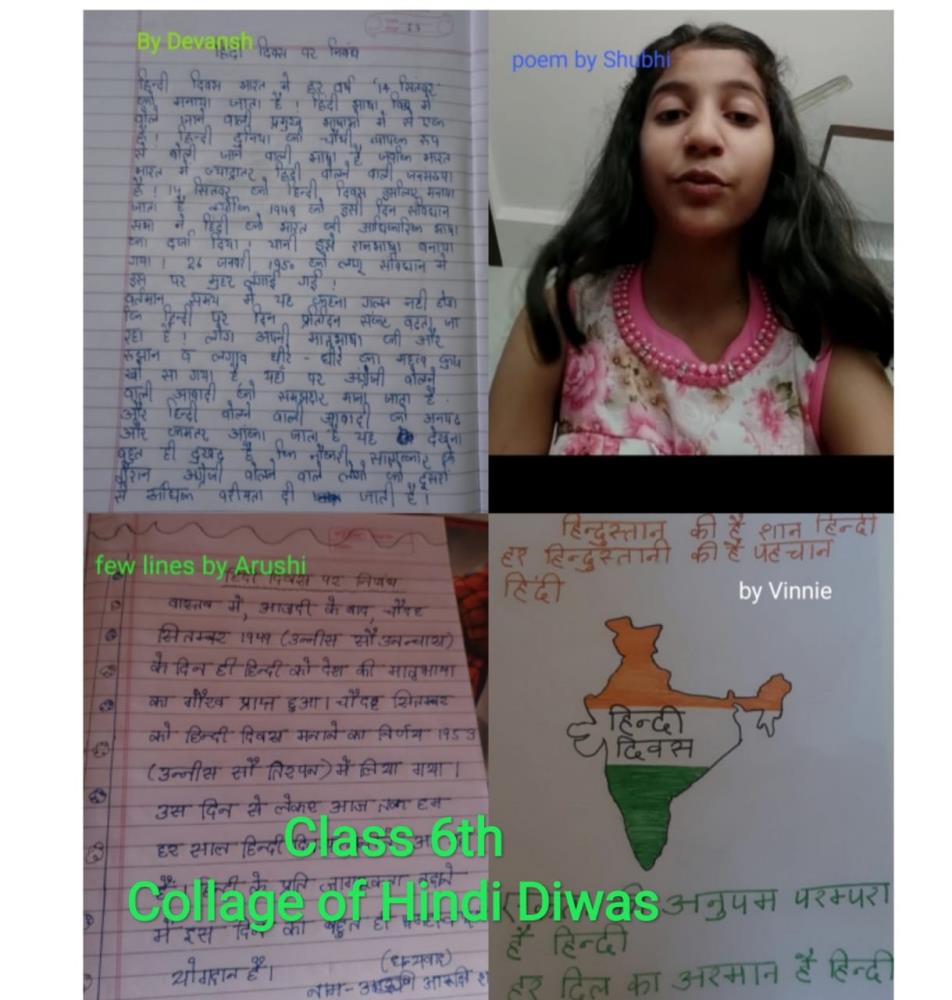 By Devansh
हिंदी दिवस पर निबंध
हिन्दी दिवस भारत में हर वर्ष '14 सितंबर'
को मनाया जाता है ! हिंदी भाषा विश्व में
बोले जाने वाली प्रमुख भाषाओं में से एक
है ! हिन्दी दुनिया की चौथी व्यापक रूप
से बोली जाने वाली भाषा है जबकि भारत
भारत में ज्यादातर हिंदी बोलने वाली जनसंख्या
है ! 14 सितंबर को हिन्दी दिवस इसलिए मनाया
जाता है क्योंकि 1949 को इसी दिन संविधान
सभा ने हिंदी को भारत की आधिकारिक भाषा
का दर्जा दिया ! यानी इसे राजभाषा बनाया
गया ! 26 जनवरी 1950 को लागू संविधान में
इस पर मुहर लगाई गई !
वर्तमान समय में यह कहना गलत नहीं होगा
कि हिन्दी पर दिन प्रतिदिन संकट बढता जा
रहा है ! लोग अपनी मातृभाषा की और
रूझान व लगाव धीरे - धीरे का महत्व कुछ
खो सा गया है यहाँ पर अंग्रेजी बोलने
वाली आबादी को समझदार माना जाता है
और हिन्दी बोलने वाली आबादी को अनपढ
और कमतर आंका जाता है यह देखना
बहुत ही दुखद है कि नौकरी, साक्षात्कार के
दौरान अंग्रेजी बोलने वाले लोगो को दूसरो
से अधिक वरीयता दी जाती है !
poem by Shubhi
few lines by Arushi
हिंदी दिवस पर निबंध
वास्तव में, आजादी के बाद, चौदह
सितम्बर 1949 (उन्नीस सौ उनन्चास)
के दिन ही हिन्दी को देश की मातृभाषा
का गौरव प्राप्त हुआ। चौदह सितम्बर
को हिन्दी दिवस मनाने का निर्णय 1953
(उन्नीस सौ तिरपन) में लिया गया।
उस दिन से लेकर आज तक हम
हर साल हिन्दी
हिन्दी के प्रति जागरूकता बढ़ाने
में इस दिन का बहुत ही
योगदान है।
(धन्यवाद)
नाम- आरूषि
हिन्दुस्तान की है शान हिन्दी
हर हिन्दुस्तानी की है पहचान
हिंदी
by Vinnie
हिन्दी
दिवस
अनुपम परम्परा
है हिन्दी
हर दिल का अरमान है हिन्दी
Class 6th
Collage of Hindi Diwas